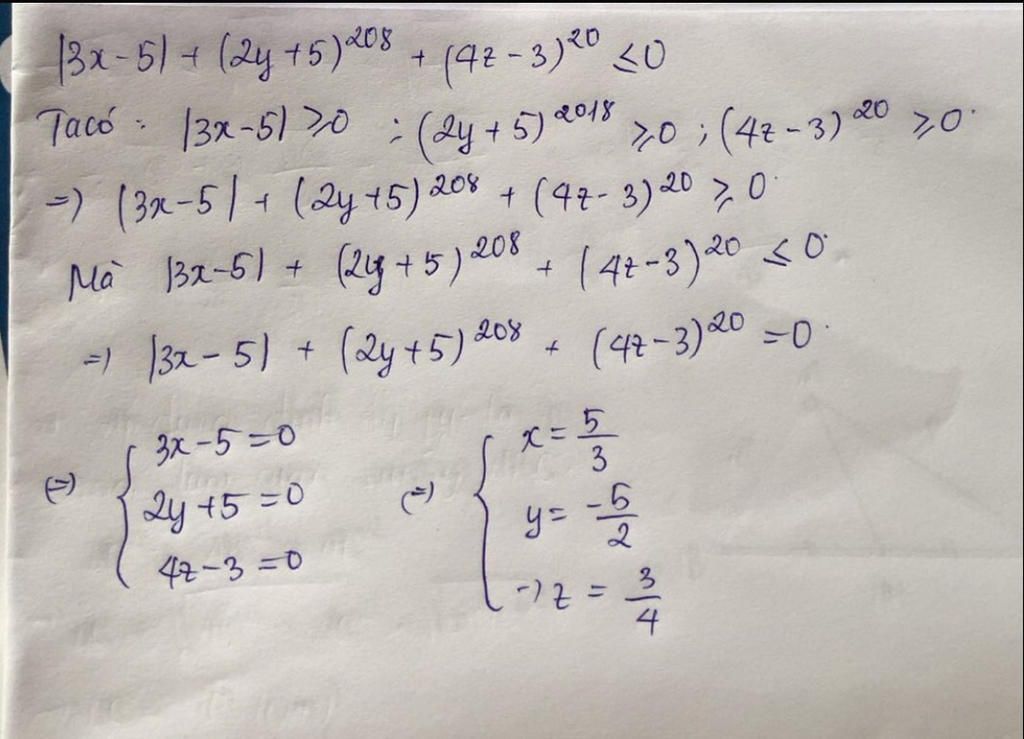 |3x-5| + (2y+5)^208 + (4z-3)^20 ≤0
Ta có : |3x-5| ≥0 ; (2y+5)^2018 ≥0 ; (4z-3)^20 ≥0.
=) |3x-5| + (2y+5)^208 + (4z-3)^20 ≥ 0.
Mà |3x-5| + (2y+5)^208 + (4z-3)^20 ≤ 0.
=) |3x-5| + (2y+5)^208 + (4z-3)^20 =0.
(=) { 3x-5=0 (=) { x= 5/3
2y+5=0 y= -5/2
4z-3=0 -) z = 3/4